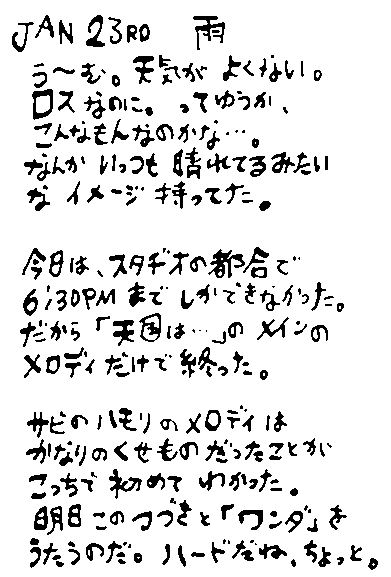 JAN 23RD 雨
う〜む。天気が よくない。
ロスなのに。ってゆうか、
こんなもんなのかな…。
なんか いっつも 晴れてるみたい
な イメージ 持ってた。
今日は、スタヂオの都合で
6:30PM までしかできなかった。
だから「天国は…」の メインの
メロディだけで 終った。
サビのハモリのメロディは
かなりのくせものだったことが
こっちで 初めて わかった。
明日このつづきと「ワンダ」を
うたうのだ。ハードだね、ちょっと。